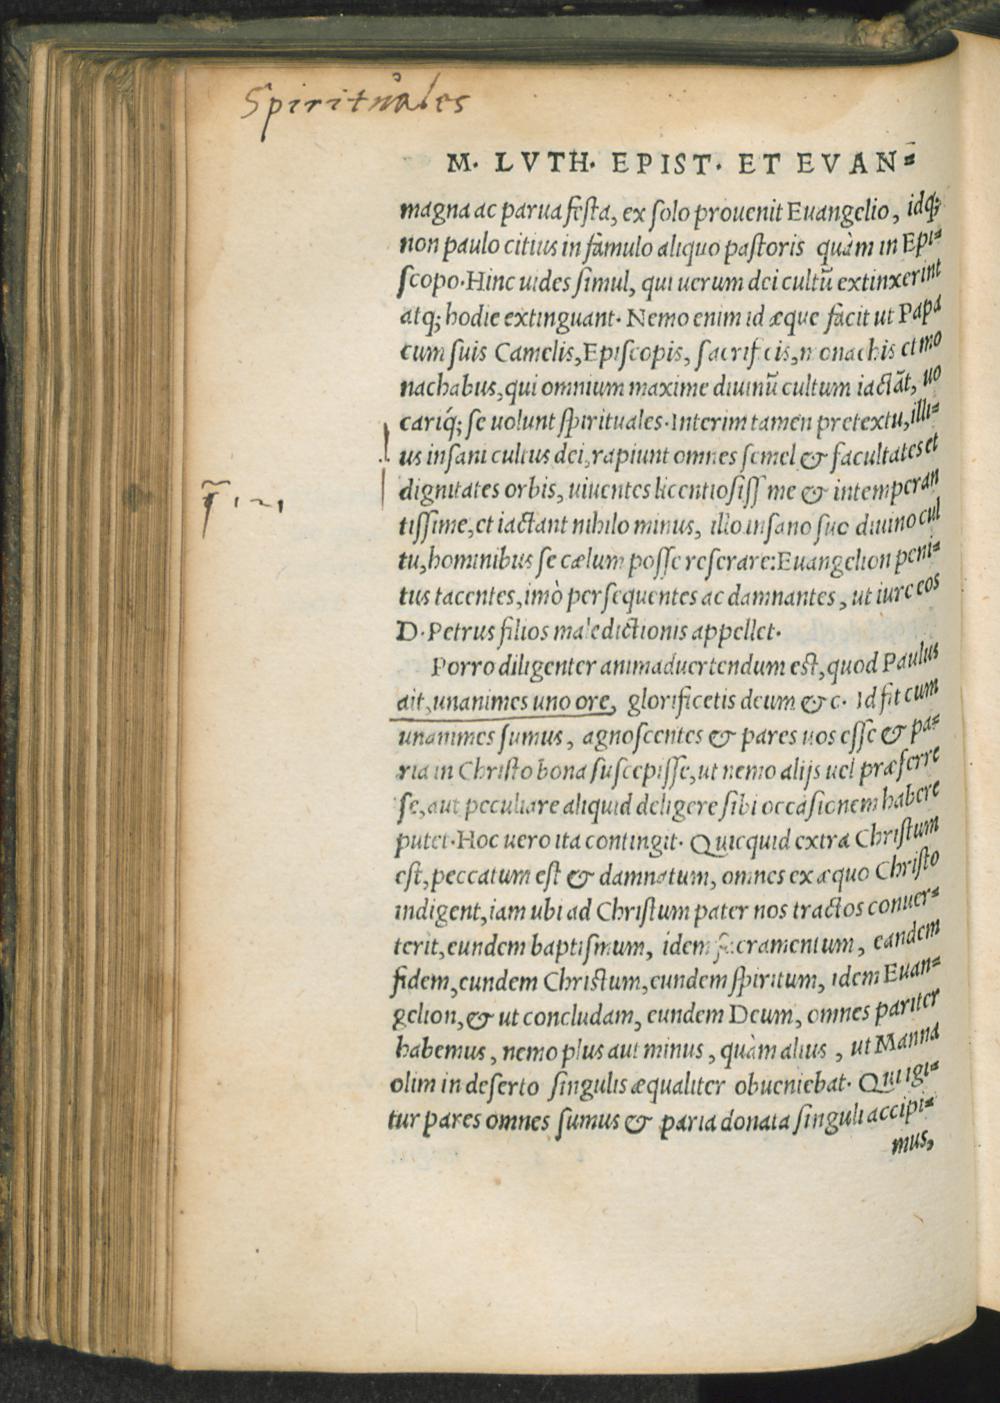 Spirituales
M. LVTH. EPIST. ET EVAN=
magna ac parua festa, ex solo prouenit Euangelio, idq;
non paulo citius in famulo aliquo pastoris quàm in Epi=
scopo. Hinc uides simul, qui uerum dei cultũ extinxerint
atq; hodie extinguant. Nemo enim id æque facit ut Papa
cum suis Camelis, Episcopis, sacrificis, monachis et mo
nachabus, qui omnium maxime diuinũ cultum iactãt, uo
cariq́; se uolunt spirituales. Interim tamen pretextu, illi=
us insani cultus dei, rapiunt omnes semel & facultates et
dignitates orbis, uiuentes licentiosissime & intemperan
tissime, et iactant nihilo minus, illo insano suo diuino cul
tu, hominibus se cælum posse reserare: Euangelion peni=
tus tacentes, imò persequentes ac damnantes, ut iure eos
D. Petrus filios maledictionis appellet.
Porro diligenter animaduertendum est, quod Paulus
ait, unanimes uno ore, glorificetis deum & c. Id fit cum
unanimes sumus, agnoscentes & pares nos esse & pa=
ria in Christo bona suscepisse, ut nemo alijs uel præferre
se, aut peculiare aliquid deligere sibi occasionem habere
putet. Hoc uero ita contingit. Quicquid extra Christum
est, peccatum est & damnatum, omnes ex æquo Christo
indigent, iam ubi ad Christum pater nos tractos conuer=
terit, eundem baptismum, idem sacramentum, eandem
fidem, eundem Christum, eundem spiritum, idem Euan=
gelion, & ut concludam, eundem Deum, omnes pariter
habemus, nemo plus aut minus, quàm alius, ut Manna
olim in deserto singulis æqualiter obueniebat. Qui igi=
tur pares omnes sumus & paria donata singuli accipi=
mus,